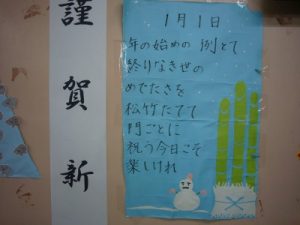 謹賀新
1月1日
年の始めの 例とて
終りなき世の
めでたさを
松竹たてて
門ごとに
祝う今日こそ
楽しけれ